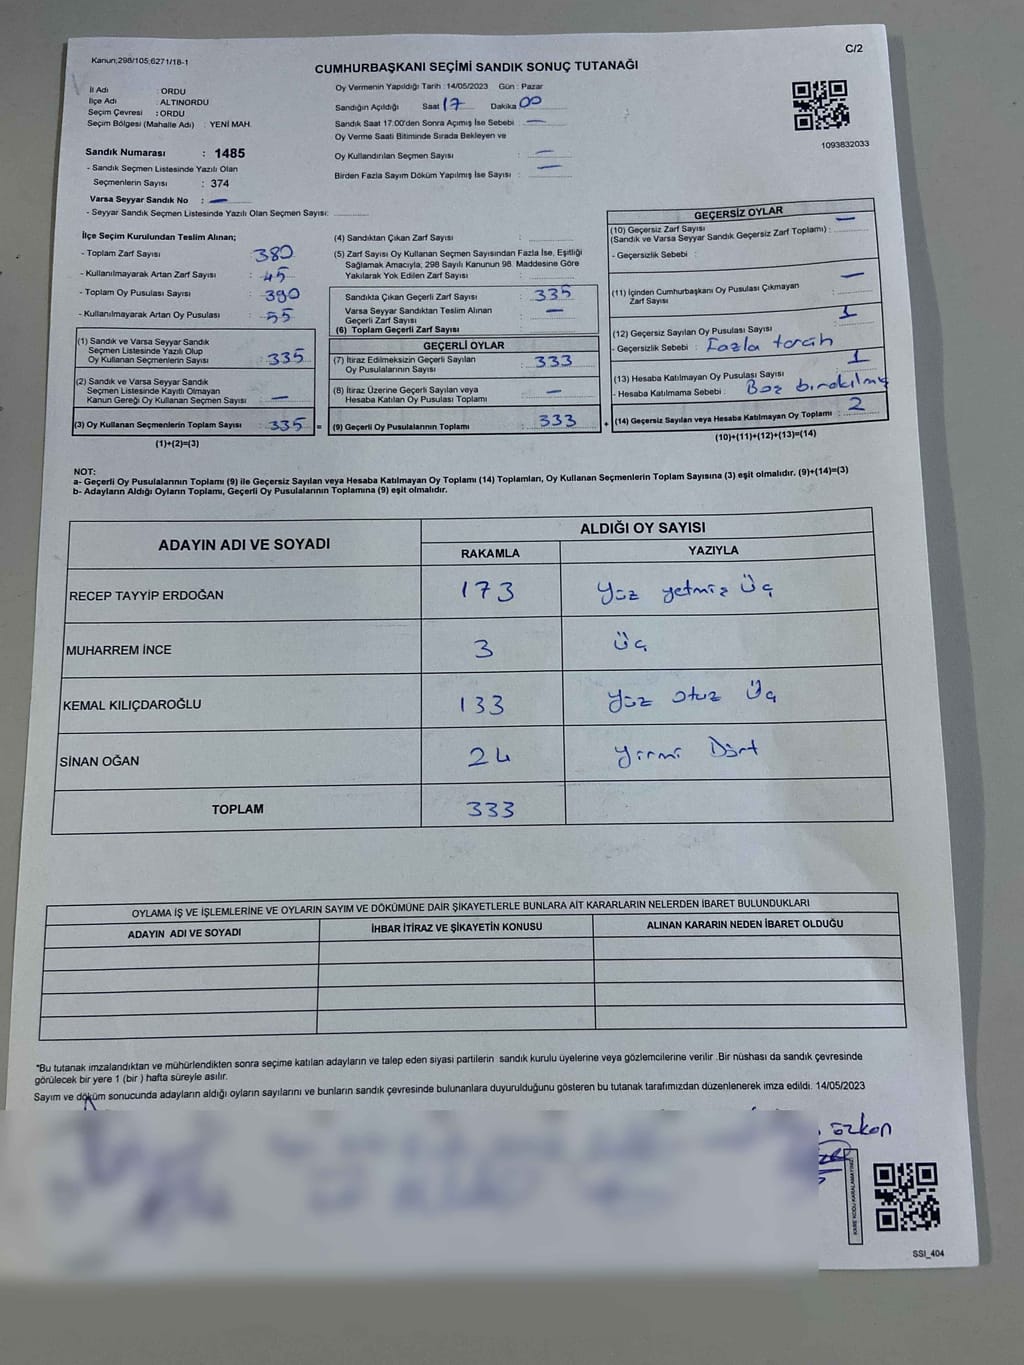 Kanun;298/105;6271/18-1
C/2
CUMHURBAŞKANI SEÇİMİ SANDIK SONUÇ TUTANAĞI
İl Adı : ORDU
İlçe Adı : ALTINORDU
Seçim Çevresi : ORDU
Seçim Bölgesi (Mahalle Adı) : YENİ MAH.
Oy Vermenin Yapıldığı Tarih : 14/05/2023 Gün : Pazar
Sandığın Açıldığı Saat 17 Dakika 00
Sandık Saat 17:00'den Sonra Açmış İse Sebebi : —
Oy Verme Saati Bitiminde Sırada Bekleyen ve
Oy Kullandırılan Seçmen Sayısı : —
Birden Fazla Sayım Döküm Yapılmış İse Sayısı : —
1093832033
Sandık Numarası : 1485
- Sandık Seçmen Listesinde Yazılı Olan
Seçmenlerin Sayısı : 374
Varsa Seyyar Sandık No : —
- Seyyar Sandık Seçmen Listesinde Yazılı Olan Seçmen Sayısı:
İlçe Seçim Kurulundan Teslim Alınan;
- Toplam Zarf Sayısı : 380
- Kullanılmayarak Artan Zarf Sayısı : 45
- Toplam Oy Pusulası Sayısı : 390
- Kullanılmayarak Artan Oy Pusulası : 55
(1) Sandık ve Varsa Seyyar Sandık
Seçmen Listesinde Yazılı Olup
Oy Kullanan Seçmenlerin Sayısı : 335
(2) Sandık ve Varsa Seyyar Sandık
Seçmen Listesinde Kayıtlı Olmayan
Kanun Gereği Oy Kullanan Seçmen Sayısı : —
(3) Oy Kullanan Seçmenlerin Toplam Sayısı : 335 =
(1)+(2)=(3)
(4) Sandıktan Çıkan Zarf Sayısı :
(5) Zarf Sayısı Oy Kullanan Seçmen Sayısından Fazla İse, Eşitliği
Sağlamak Amacıyla, 298 Sayılı Kanunun 98. Maddesine Göre
Yakılarak Yok Edilen Zarf Sayısı :
Sandıkta Çıkan Geçerli Zarf Sayısı : 335
Varsa Seyyar Sandıktan Teslim Alınan
Geçerli Zarf Sayısı : —
(6) Toplam Geçerli Zarf Sayısı :
GEÇERLİ OYLAR
(7) İtiraz Edilmeksizin Geçerli Sayılan
Oy Pusulalarının Sayısı : 333
(8) İtiraz Üzerine Geçerli Sayılan veya
Hesaba Katılan Oy Pusulası Toplamı : —
(9) Geçerli Oy Pusulalarının Toplamı : 333 +
GEÇERSİZ OYLAR
(10) Geçersiz Zarf Sayısı
(Sandık ve Varsa Seyyar Sandık Geçersiz Zarf Toplamı) : —
- Geçersizlik Sebebi :
(11) İçinden Cumhurbaşkanı Oy Pusulası Çıkmayan
Zarf Sayısı : —
(12) Geçersiz Sayılan Oy Pusulası Sayısı : 1
- Geçersizlik Sebebi : Fazla tercih
(13) Hesaba Katılmayan Oy Pusulası Sayısı : 1
- Hesaba Katılmama Sebebi : Boş bırakılmış
(14) Geçersiz Sayılan veya Hesaba Katılmayan Oy Toplamı : 2
(10)+(11)+(12)+(13)=(14)
NOT:
a- Geçerli Oy Pusulalarının Toplamı (9) ile Geçersiz Sayılan veya Hesaba Katılmayan Oy Toplamı (14) Toplamları, Oy Kullanan Seçmenlerin Toplam Sayısına (3) eşit olmalıdır. (9)+(14)=(3)
b- Adayların Aldığı Oyların Toplamı, Geçerli Oy Pusulalarının Toplamına (9) eşit olmalıdır.
ADAYIN ADI VE SOYADI
ALDIĞI OY SAYISI
RAKAMLA YAZIYLA
RECEP TAYYİP ERDOĞAN 173 Yüz yetmiş Üç
MUHARREM İNCE 3 Üç
KEMAL KILIÇDAROĞLU 133 Yüz otuz Üç
SİNAN OĞAN 24 Yirmi Dört
TOPLAM 333
OYLAMA İŞ VE İŞLEMLERİNE VE OYLARIN SAYIM VE DÖKÜMÜNE DAİR ŞİKAYETLERLE BUNLARA AİT KARARLARIN NELERDEN İBARET BULUNDUKLARI
ADAYIN ADI VE SOYADI İHBAR İTİRAZ VE ŞİKAYETİN KONUSU ALINAN KARARIN NEDEN İBARET OLDUĞU
"Bu tutanak imzalandıktan ve mühürlendikten sonra seçime katılan adayların ve talep eden siyasi partilerin sandık kurulu üyelerine veya gözlemcilerine verilir .Bir nüshası da sandık çevresinde
görülecek bir yere 1 (bir ) hafta süreyle asılır.
Sayım ve döküm sonucunda adayların aldığı oyların sayılarını ve bunların sandık çevresinde bulunanlara duyurulduğunu gösteren bu tutanak tarafımızdan düzenlenerek imza edildi. 14/05/2023
özkan
KARE KODU KARALAMAYINIZ
SSI_404